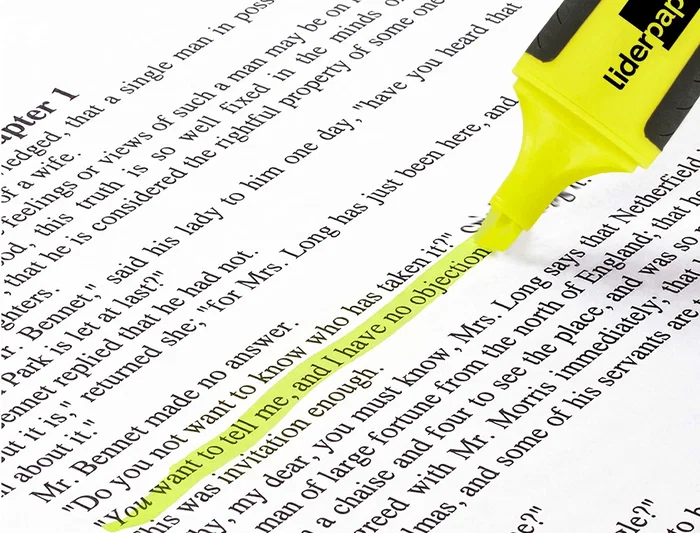 liderpap
apter 1
ledged, that a single man in poss
of a wife.
feelings or views of such a man may be on
this truth is so well fixed in the minds o
, that he is considered the rightful property of some one
ghters.
r. Bennet," said his lady to him one day, "have you heard that
Park is let at last?"
ennet replied that he had not.
ut it is," returned she; "for Mrs. Long has just been here, and
ll about it."
Mr. Bennet made no answer.
"Do you not want to know who has taken it?"
"You want to tell me, and I have no objection
his was invitation enough.
hy, my dear, you must know, Mrs. Long says that Netherfield
man of large fortune from the north of England; that he
a chaise and four to see the place, and was so
reed with Mr. Morris immediately; that
lmas, and some of his servants are